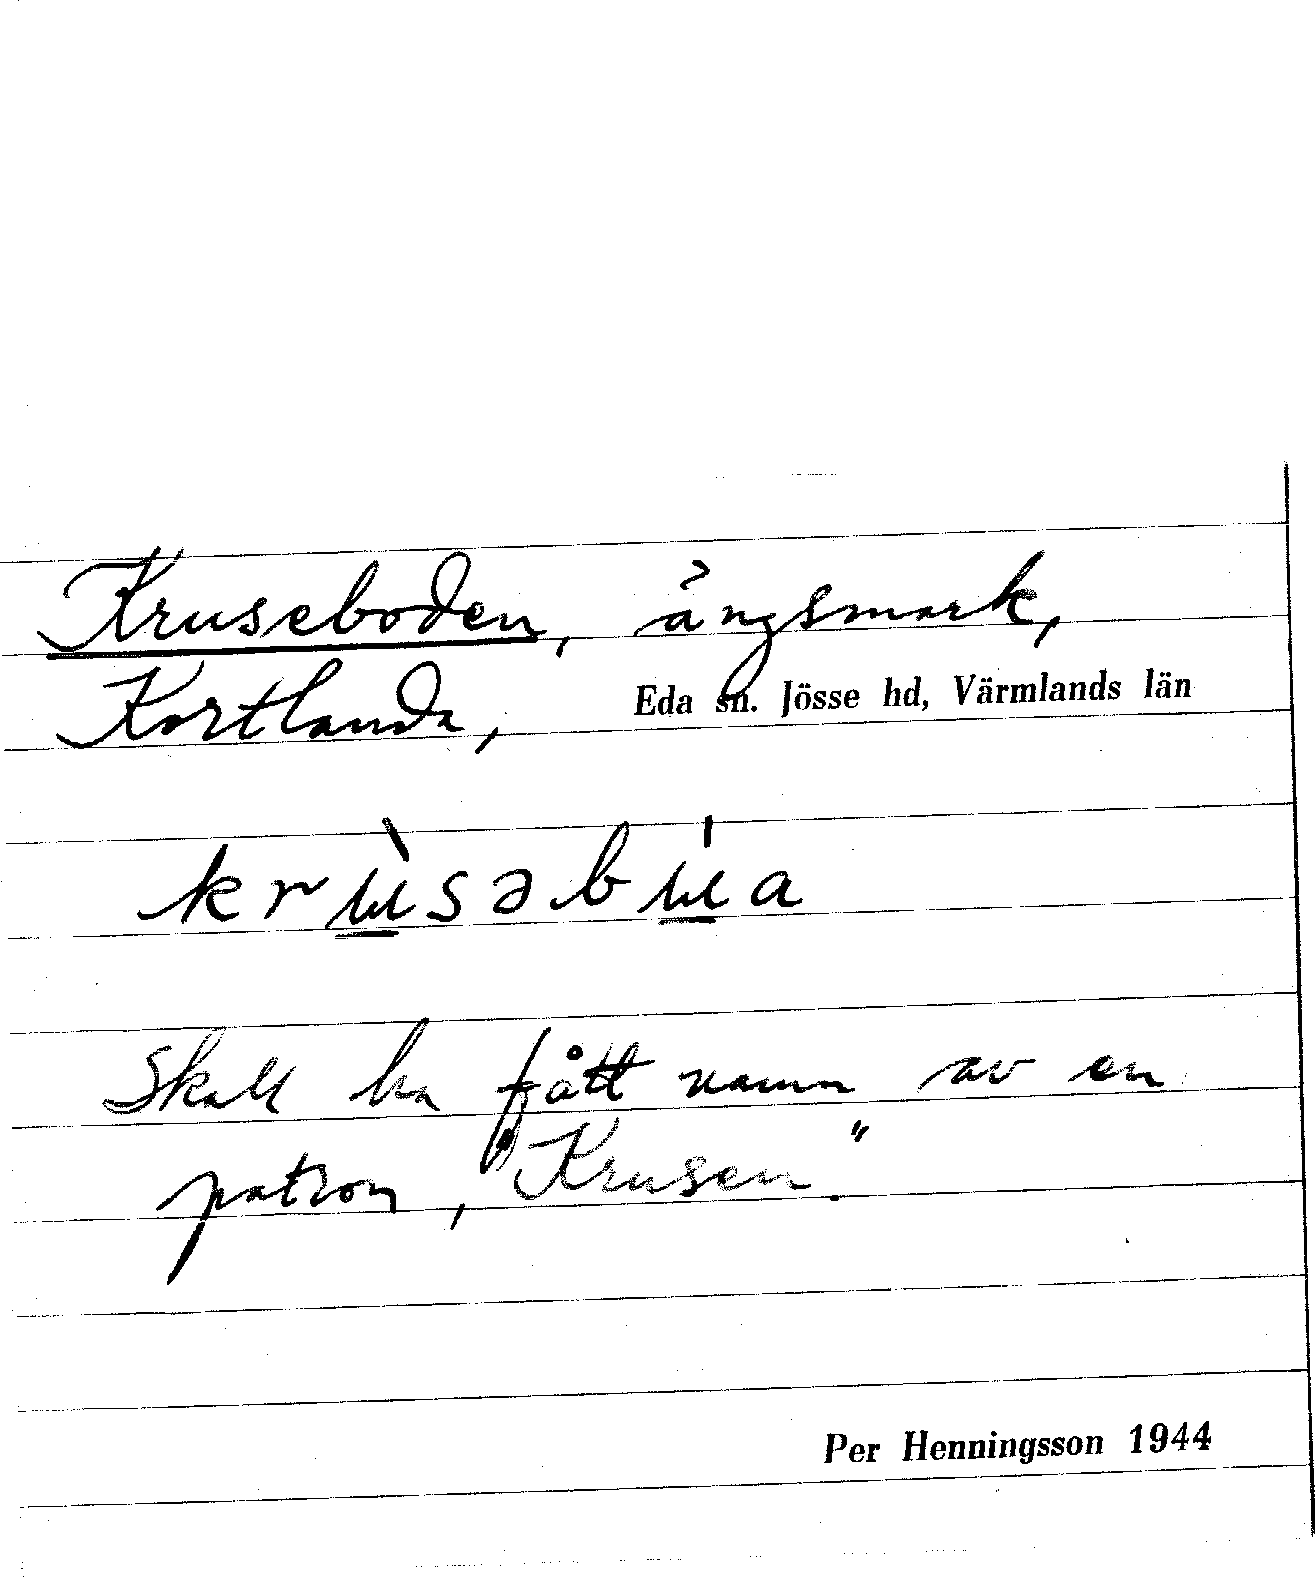 Kruseboden, ängsmark,
Kortlanda, Eda sn. Jösse hd, Värmlands län
krɯ̀səbɯ́a
Skall ha fått namn av en
patron, "Krusen".
Per Henningsson 1944